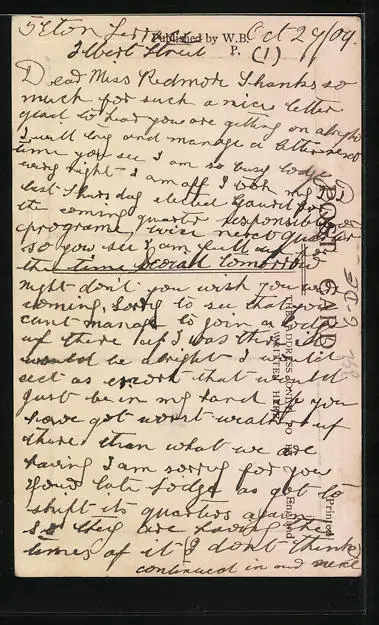 5 Eton Terrace Oct 27/09.
Albert Street
Published by W.B.
P.
(1)
Dear Miss Redmore Thanks so
much for such a nice letter
glad to hear you are getting on alright
I will try and manage a letter next
time you see I am so busy lodge
every night I am off I took my
last Thursday elected
the coming quarter responsible for
programe, wise next quarter
so you see I am full up
the time social tomorrow
night don't you wish you were
coming, Sorry to see that you
cant manage to join a lodge
up there if I was there it
would be alright I would
act as escort that would
just be in my hand you
have got worst weather up
there than what we are
having I am sorry for you
Your late lodge as got to
shift its quarters again
so they are having the
times of it I dont think
continued in our next
POST CARD
THE ADDRESS ONLY TO BE
WRITTEN HERE
Printed
England